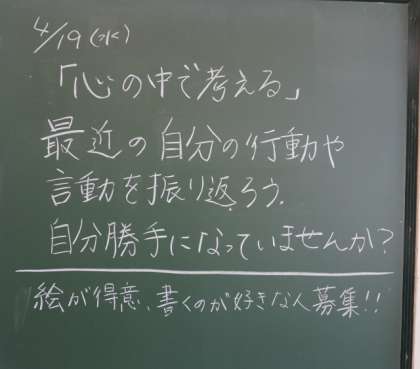 4/19(水)
「心の中で考える」
最近の自分の行動や
言動を振り返ろう.
自分勝手になっていませんか?
絵が得意、書くのが好きな人募集!!